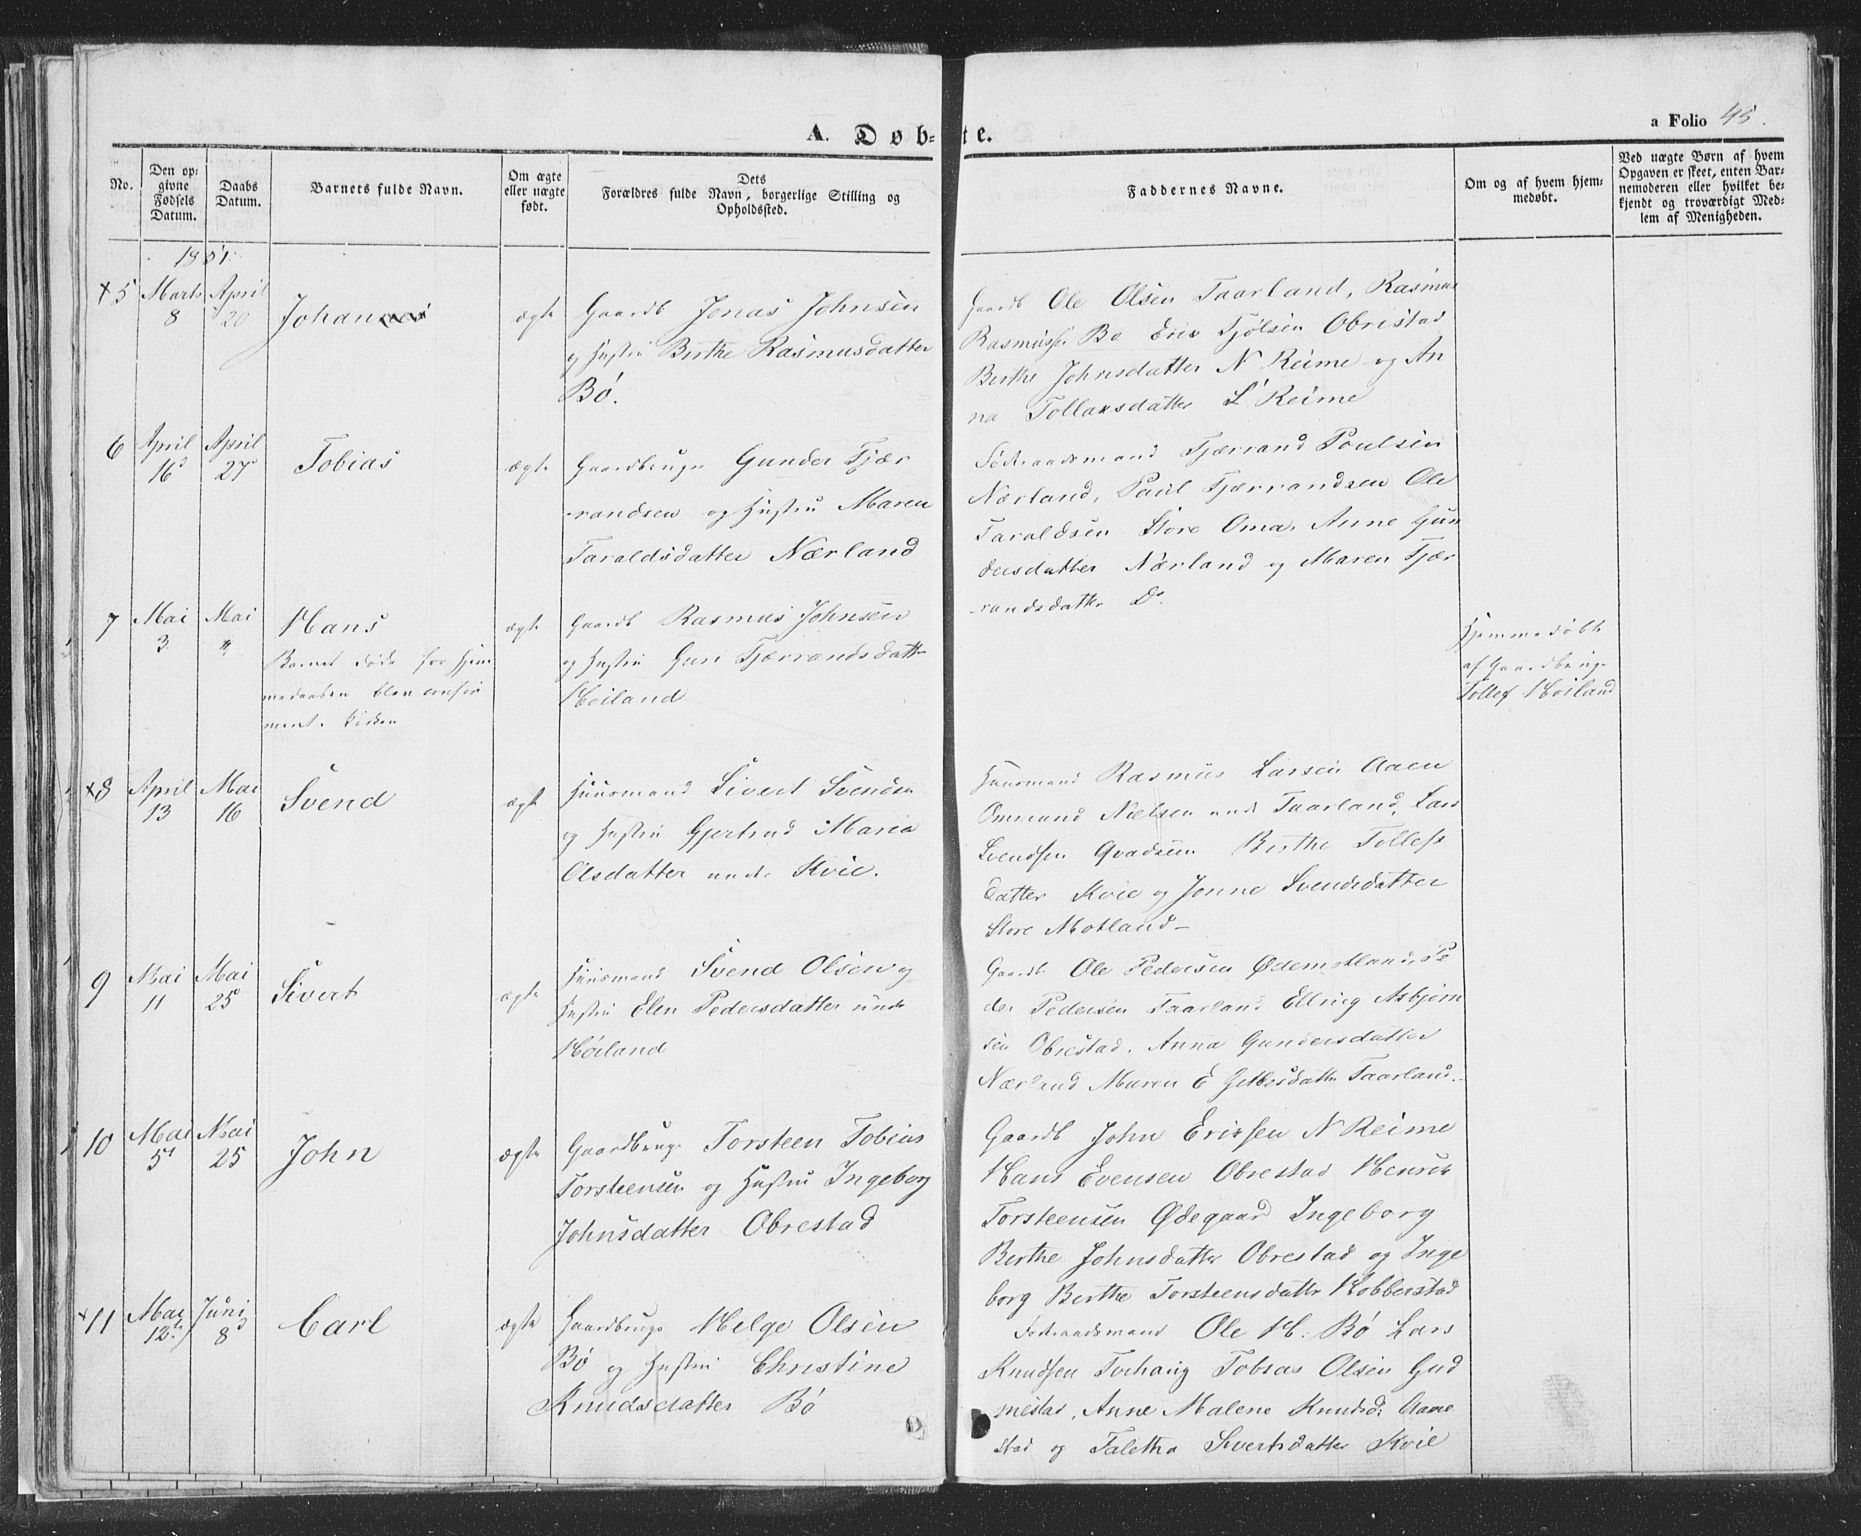 A. Døb-te.
a Folio 45.
No.
Den op-
givne
Fødsels
Datum.
Daabs
Datum.
Barnets fulde Navn.
Om ægte
eller uægte
født.
Dets
Forældres fulde Navn, borgerlige Stilling og
Opholdssted.
Faddernes Navne.
Om og af hvem hjem-
medøbt.
Ved uægte Børn af hvem
Opgaven er skeet, enten Bar-
nemoderen eller hvilket be-
kjendt og troværdigt Med-
lem af Menigheden.
1851
x5 Marts 8 April 20 Johannes ægte
Gaardb Jonas Johnsen
og Hustru Berthe Rasmusdatter
Bö.
Gaardb Ole Olsen Taarland, Rasmus
Rasmussen Bø Eric Tjølsen Obrestad
Berthe Johnsdatter N Reime og An
na Tollaksdatter L Reime
6 April 16d April 27d Tobias ægte
Gaardbruger Gunder Tjær
randsen og Hustru Maren
Taraldsdatter Nærland
Forligsmand Tjærrand Poulsen
Nærland, Paul Tjærrandsen Ole
Taraldsen Store Oma, Anne Gun
dersdatter Nærland og Maren Tjær
randsdatter Do
7 Mai 3 Mai " Hans ægte
Barnet døde før Hjem
medaaben blev confir
meret i Kirken
Gaardb Rasmus Johnsen
og Hustru Guri Tjærrandsdatter
Höiland
Hjemmedøbt
af Gaardbruger
Tollef Höiland
x8 April 13 Mai 16 Svend ægte
Huusmand Sivert Svendsen
og Hustru Gjertrud Maria
Olsdatter under Kvie.
Huusmand Rasmus Larsen Aaen
Ommund Nielsen under Taarland, Lars
Svendsen Qvadsem Berthe Tollefs
datter Kvie og Jonne Svendsdatter
Store Motland-
9 Mai 11 Mai 25 Sivert ægte
Huusmand Svend Olsen og
Hustru Elen Pedersdatter under
Höiland
Gaardb Ole Pedersen Ødemotland, Pe
der Pedersen Taarland Elling Asbjørn
sen Obrestad, Anna Gundersdatter
Nærland Maren E Taarland.
10 Mai 5te Mai 25 John ægte
Gaardbruger Torsteen Tobias
Torsteensen og Hustru Ingeborg
Johnsdatter Obrestad
Gaardb John Ericsen N Reime
Hans Evensen Obrestad Henrik
Torsteensen Ødegaard Ingeborg
Berthe Johnsdatter Obrestad og Inge
borg Berthe Torsteensdatter Hobberstad
x11 Mai 12te Juni 8d Carl ægte
Gaardbruger Helge Olsen
Bö og Hustru Christine
Knudsdatter Bö
Forligsmand Ole H. Bö Lars
Knudsen Torhaug Tobias Olsen Gud
mestad, Anne Malene Knudsd. Aane
stad og Taletha Sivertsdatter Kvie